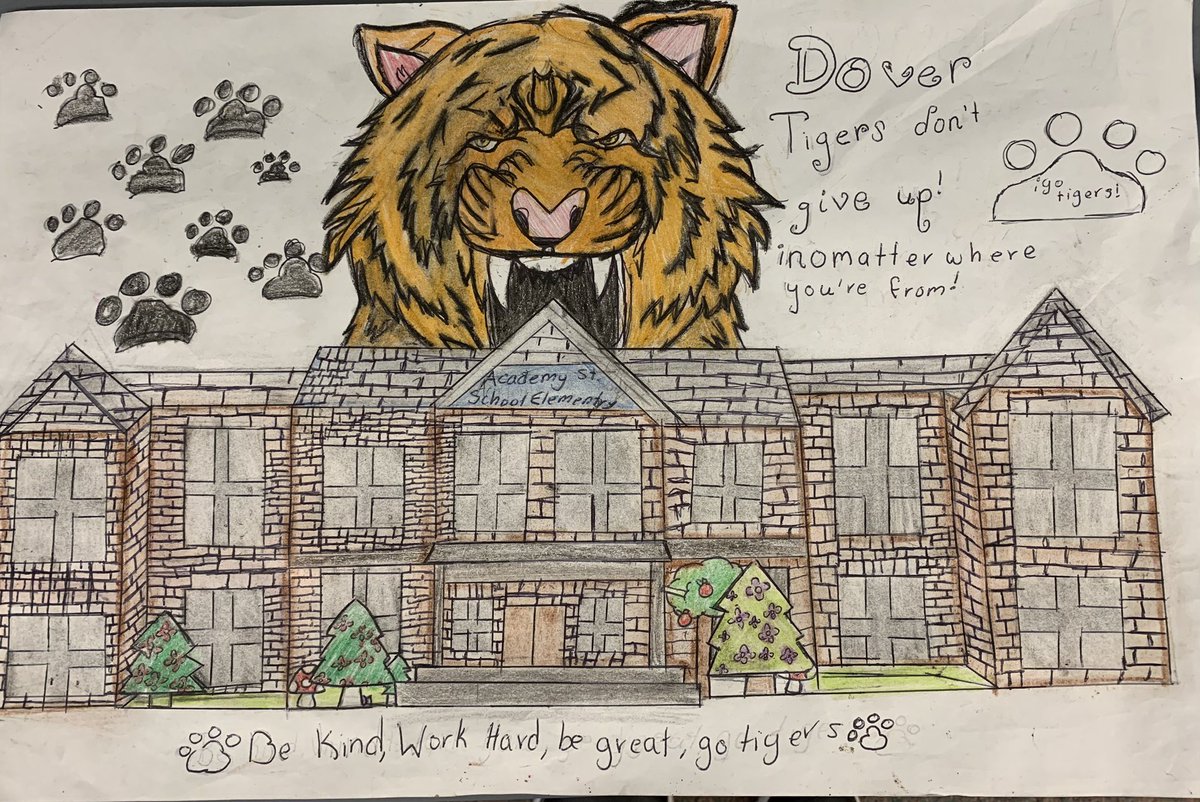 Dover
Tigers don't
give up!
¡nomatter where
you're from!
¡go
tigers!
Academy St.
School Elementry
Be Kind, Work Hard, be great, go tigers